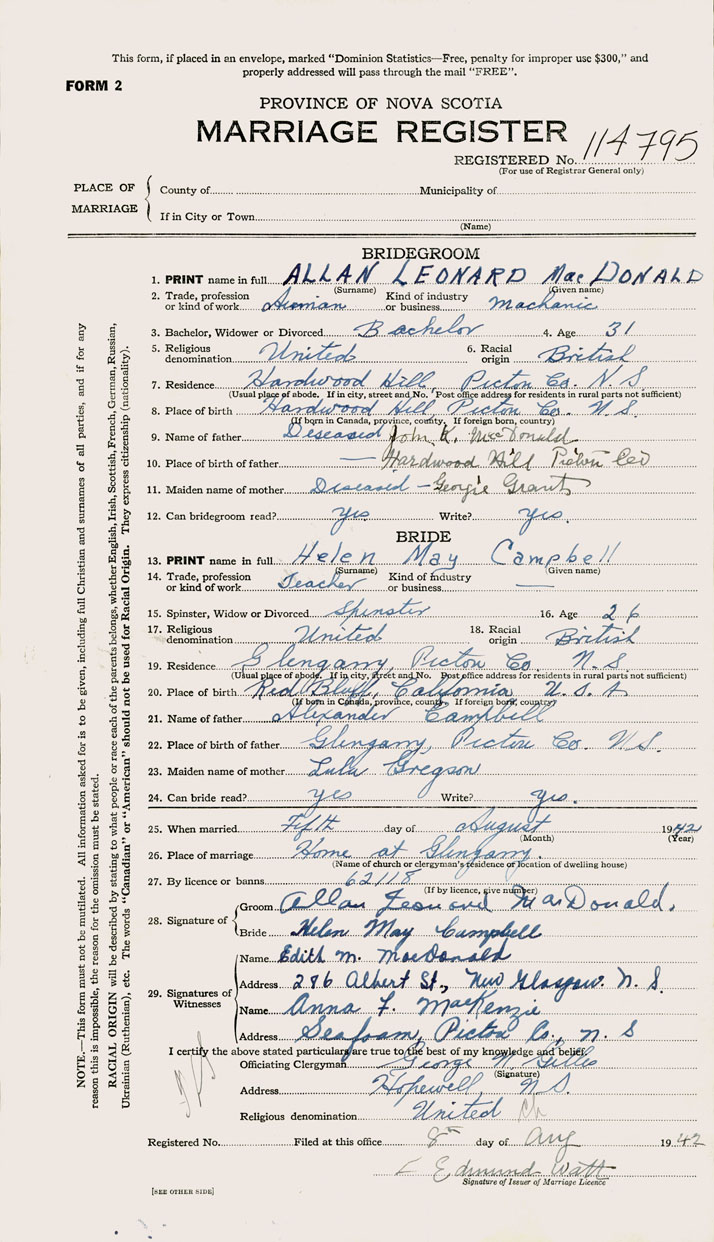 This form, if placed in an envelope, marked "Dominion Statistics—Free, penalty for improper use $300," and
properly addressed will pass through the mail "FREE".
FORM 2
PROVINCE OF NOVA SCOTIA
MARRIAGE REGISTER
REGISTERED No. 114795
(For use of Registrar General only)
PLACE OF MARRIAGE
County of Municipality of
If in City or Town
(Name)
BRIDEGROOM
1. PRINT name in full ALLAN LEONARD MacDONALD
(Surname) (Given name)
2. Trade, profession or kind of work Airman Kind of industry or business Machanic
3. Bachelor, Widower or Divorced Bachelor 4. Age 31
5. Religious denomination United 6. Racial origin British
7. Residence Hardwood Hill, Picton Co. N S
(Usual place of abode. If in city, street and No. Post office address for residents in rural parts not sufficient)
8. Place of birth Hardwood Hill, Picton Co. N. S.
(If born in Canada, province, county. If foreign born, country)
9. Name of father Deseased John K. MacDonald
10. Place of birth of father — Hardwood Hill Picton Co
11. Maiden name of mother Deseased — Georgie Grant
12. Can bridegroom read? yes Write? yes.
BRIDE
13. PRINT name in full Helen May Campbell
(Surname) (Given name)
14. Trade, profession or kind of work Teacher Kind of industry or business —
15. Spinster, Widow or Divorced Spinster 16. Age 26
17. Religious denomination United 18. Racial origin British
19. Residence Glengarry, Picton Co. N. S.
(Usual place of abode. If in city, street and No. Post office address for residents in rural parts not sufficient)
20. Place of birth Red Bluff, California U. S. A
(If born in Canada, province, county. If foreign born, country)
21. Name of father Alexander Campbell
22. Place of birth of father Glengarry, Picton Co. N. S.
23. Maiden name of mother Lulu Gregson
24. Can bride read? yes Write? yes.
25. When married Fifth day of August 1942
(Month) (Year)
26. Place of marriage Home at Glengarry.
(Name of church or clergyman's residence or location of dwelling house)
27. By licence or banns 62118
(If by licence, give number)
28. Signature of
Groom Allan Leonard MacDonald.
Bride Helen May Campbell
29. Signatures of Witnesses
Name Edith M. MacDonald
Address 286 Albert St., New Glasgow. N. S.
Name Anna F. MacKenzie
Address Seafoam, Picton Co., N. S
I certify the above stated particulars are true to the best of my knowledge and belief.
Officiating Clergyman George Gillis
(Signature)
Address Hopewell N. S.
Religious denomination United Ch
Registered No. Filed at this office 8th day of Aug 1942
Edmund Watt
Signature of Issuer of Marriage Licence
[SEE OTHER SIDE]
NOTE.—This form must not be mutilated. All information asked for is to be given, including full Christian and surnames of all parties, and if for any
reason this is impossible, the reason for the omission must be stated.
RACIAL ORIGIN will be described by stating to what people or race each of the parents belongs, whether English, Irish, Scottish, French, German, Russian,
Ukrainian (Ruthenian), etc. The words "Canadian" or "American" should not be used for Racial Origin. They express citizenship (nationality).